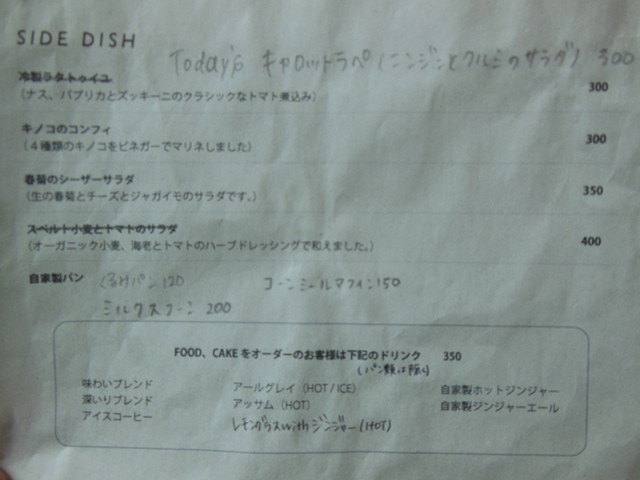 SIDE DISH
Today's キャロットラペ (ニンジンとクルミのサラダ) 300
冷製ラタトゥイユ
(ナス、パプリカとズッキーニのクラシックなトマト煮込み) 300
キノコのコンフィ
(4種類のキノコをビネガーでマリネしました) 300
春菊のシーザーサラダ
(生の春菊とチーズとジャガイモのサラダです。) 350
スペルト小麦とトマトのサラダ
(オーガニック小麦、海老とトマトのハーブドレッシングで和えました。) 400
自家製パン くるみパン 120 コーンミールマフィン150
ミルクスコーン 200
FOOD、CAKEをオーダーのお客様は下記のドリンク 350
(パン類は除く)
味わいブレンド アールグレイ(HOT/ICE) 自家製ホットジンジャー
深いりブレンド アッサム(HOT) 自家製ジンジャーエール
アイスコーヒー レモングラスwithジンジャー(HOT)